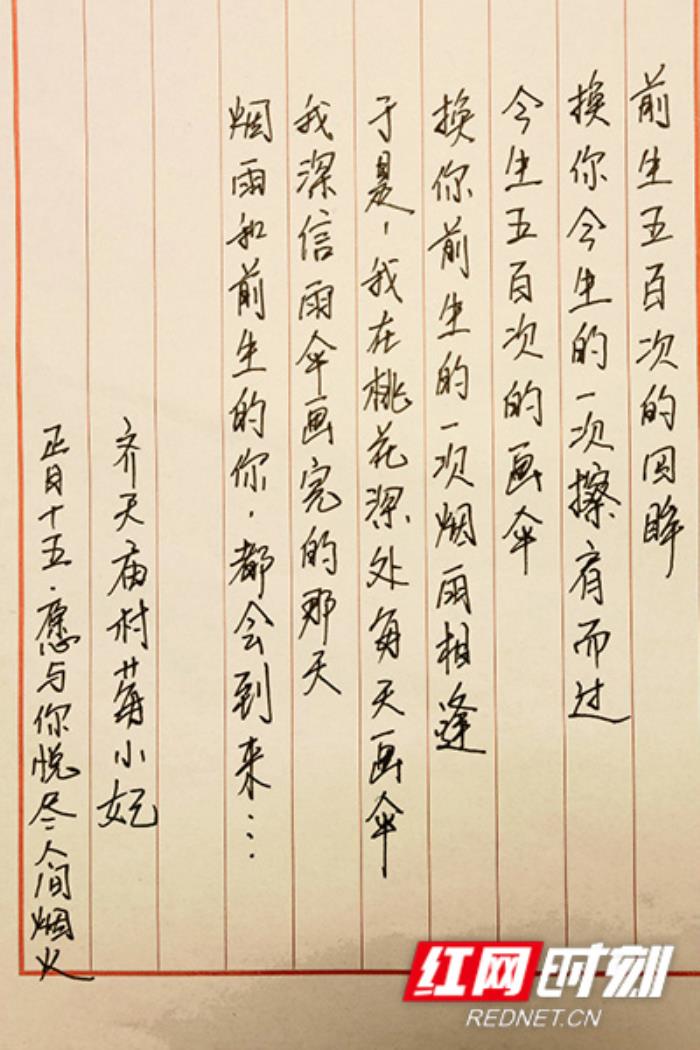 前生五百次的回眸
换你今生的一次擦肩而过
今生五百次的画伞
换你前生的一次烟雨相逢
于是，我在桃花深处每天画伞
我深信雨伞画完的那天
烟雨和前生的你，都会到来…
齐天庙村莓小妃
正月十五.愿与你悦尽人间烟火
红网时刻
REDNET.CN